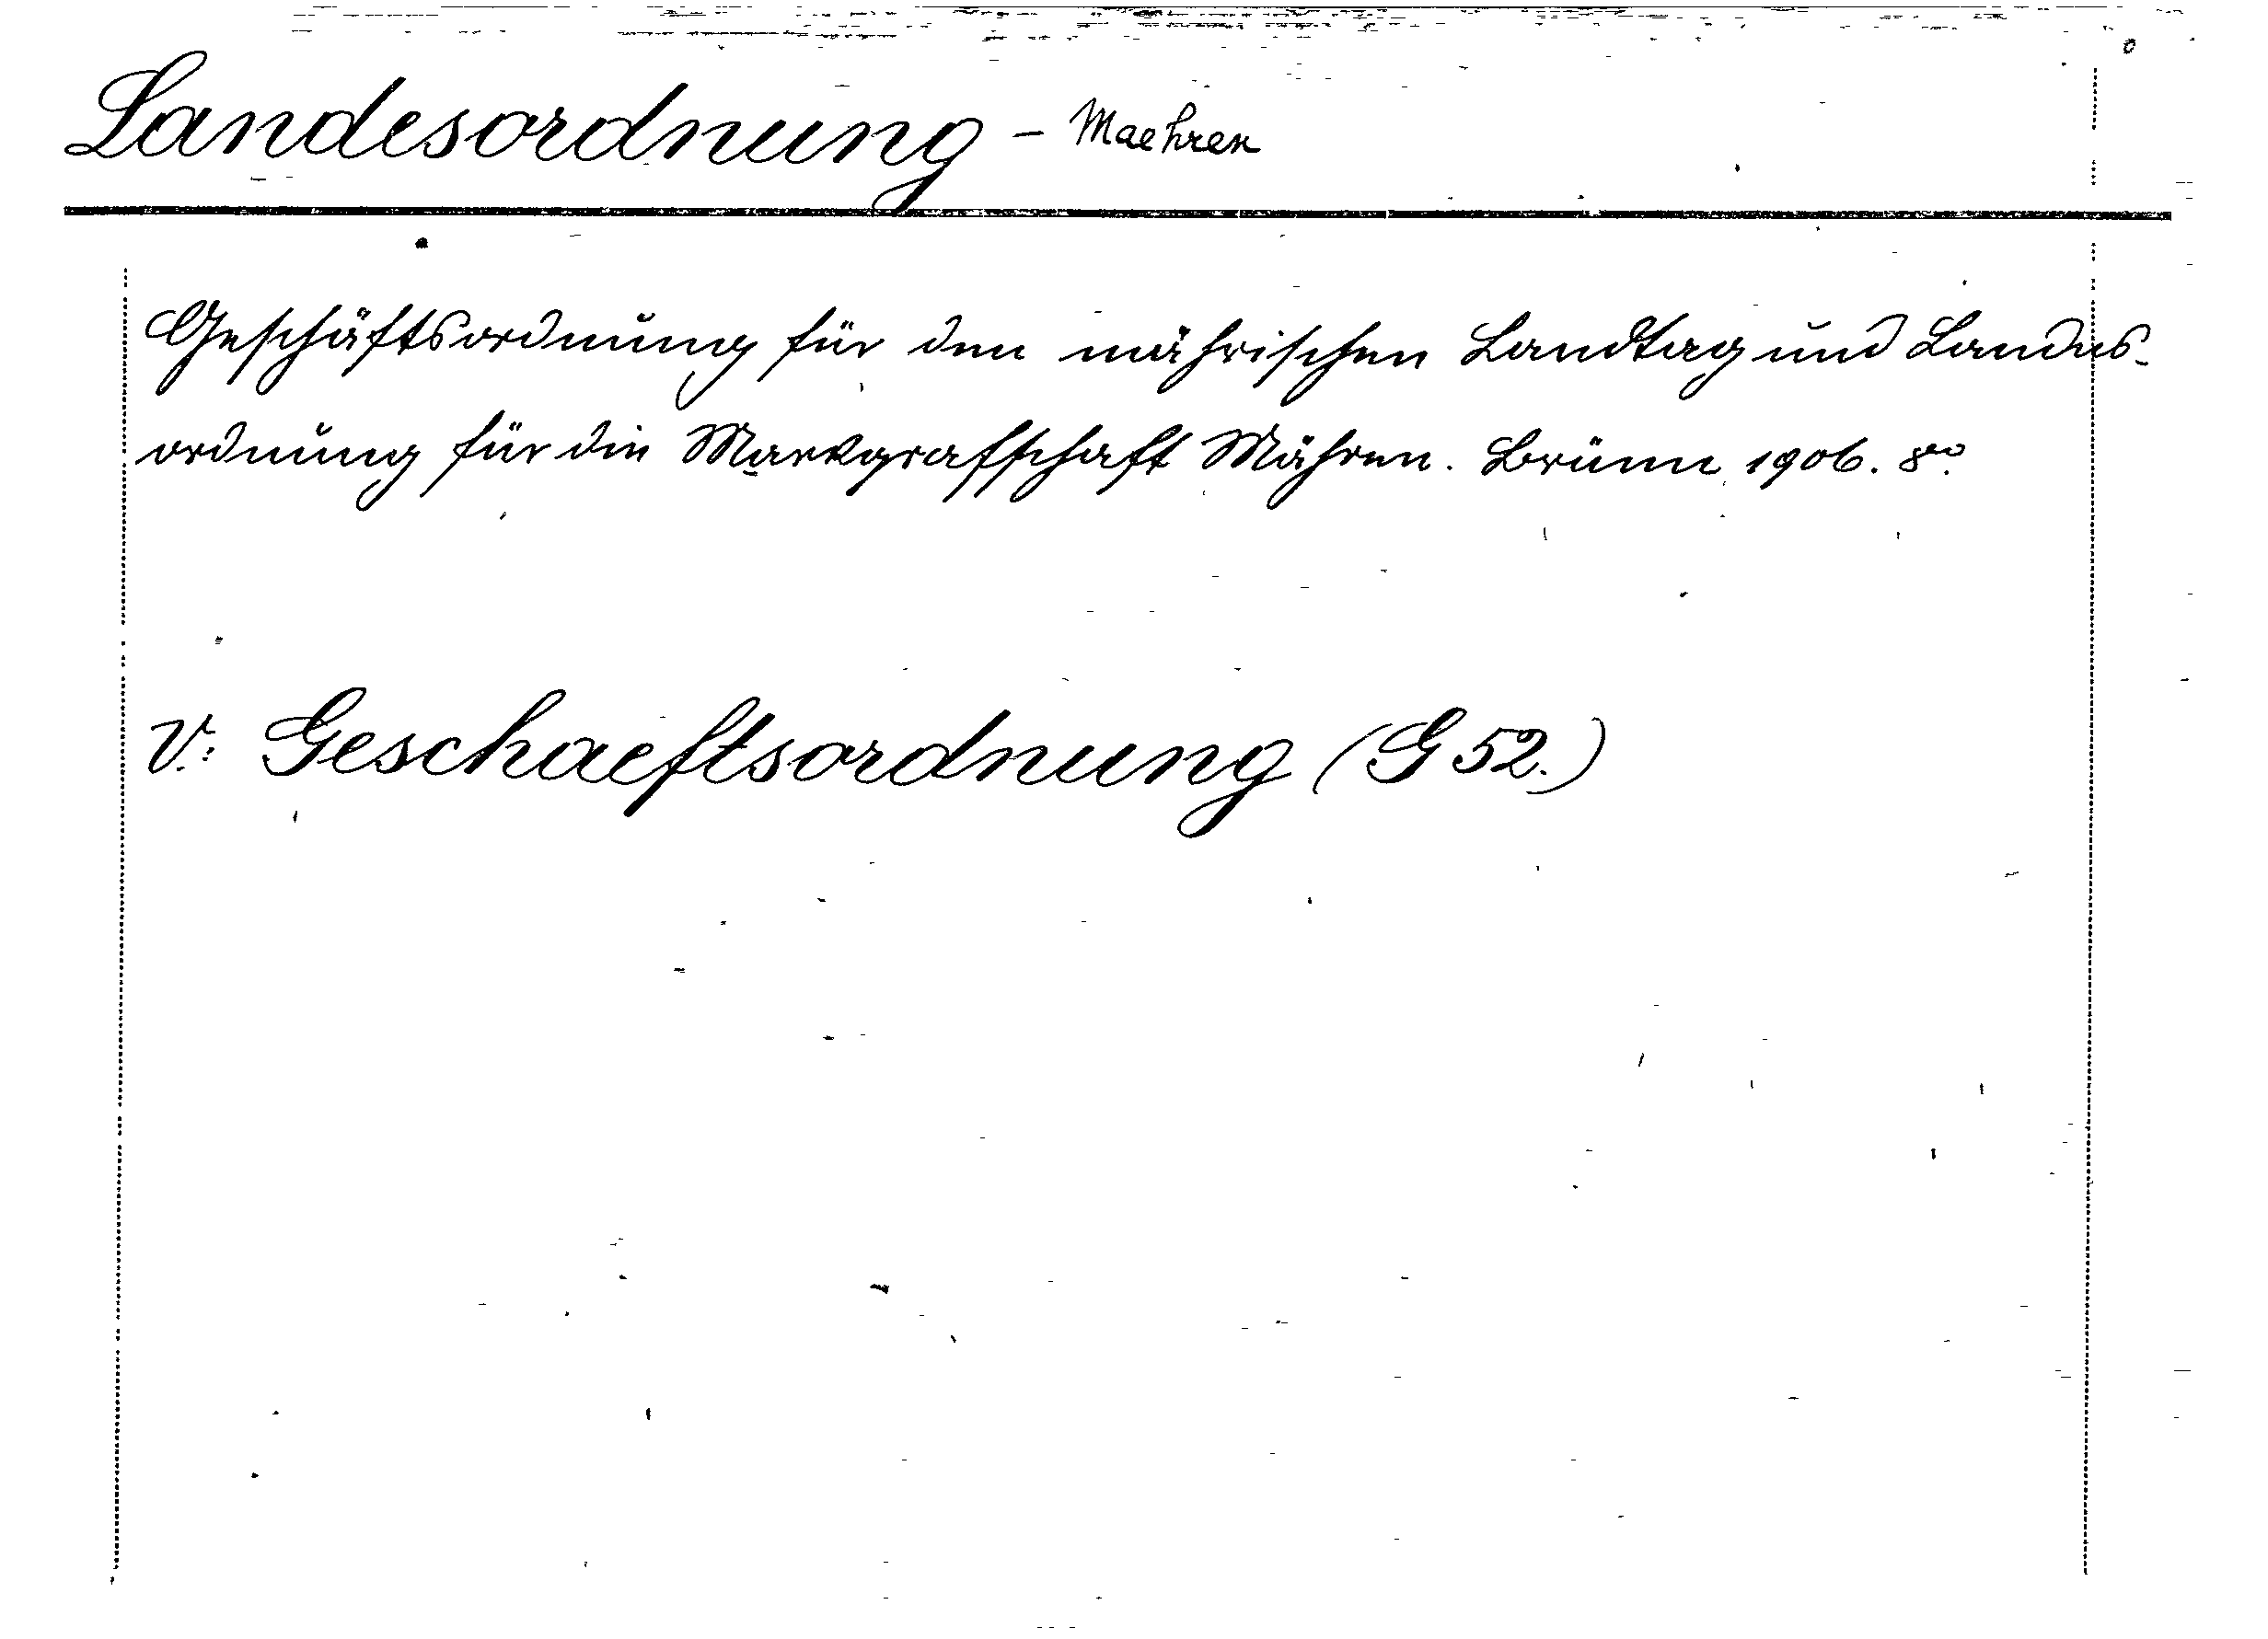 Landesordnung - Maehren
Geschäftsordnung für den mährischen Landtag und Landes-
ordnung für die Markgrafschaft Mähren. Brünn 1906. 8vo.
V: Geschaeftsordnung (G 52.)